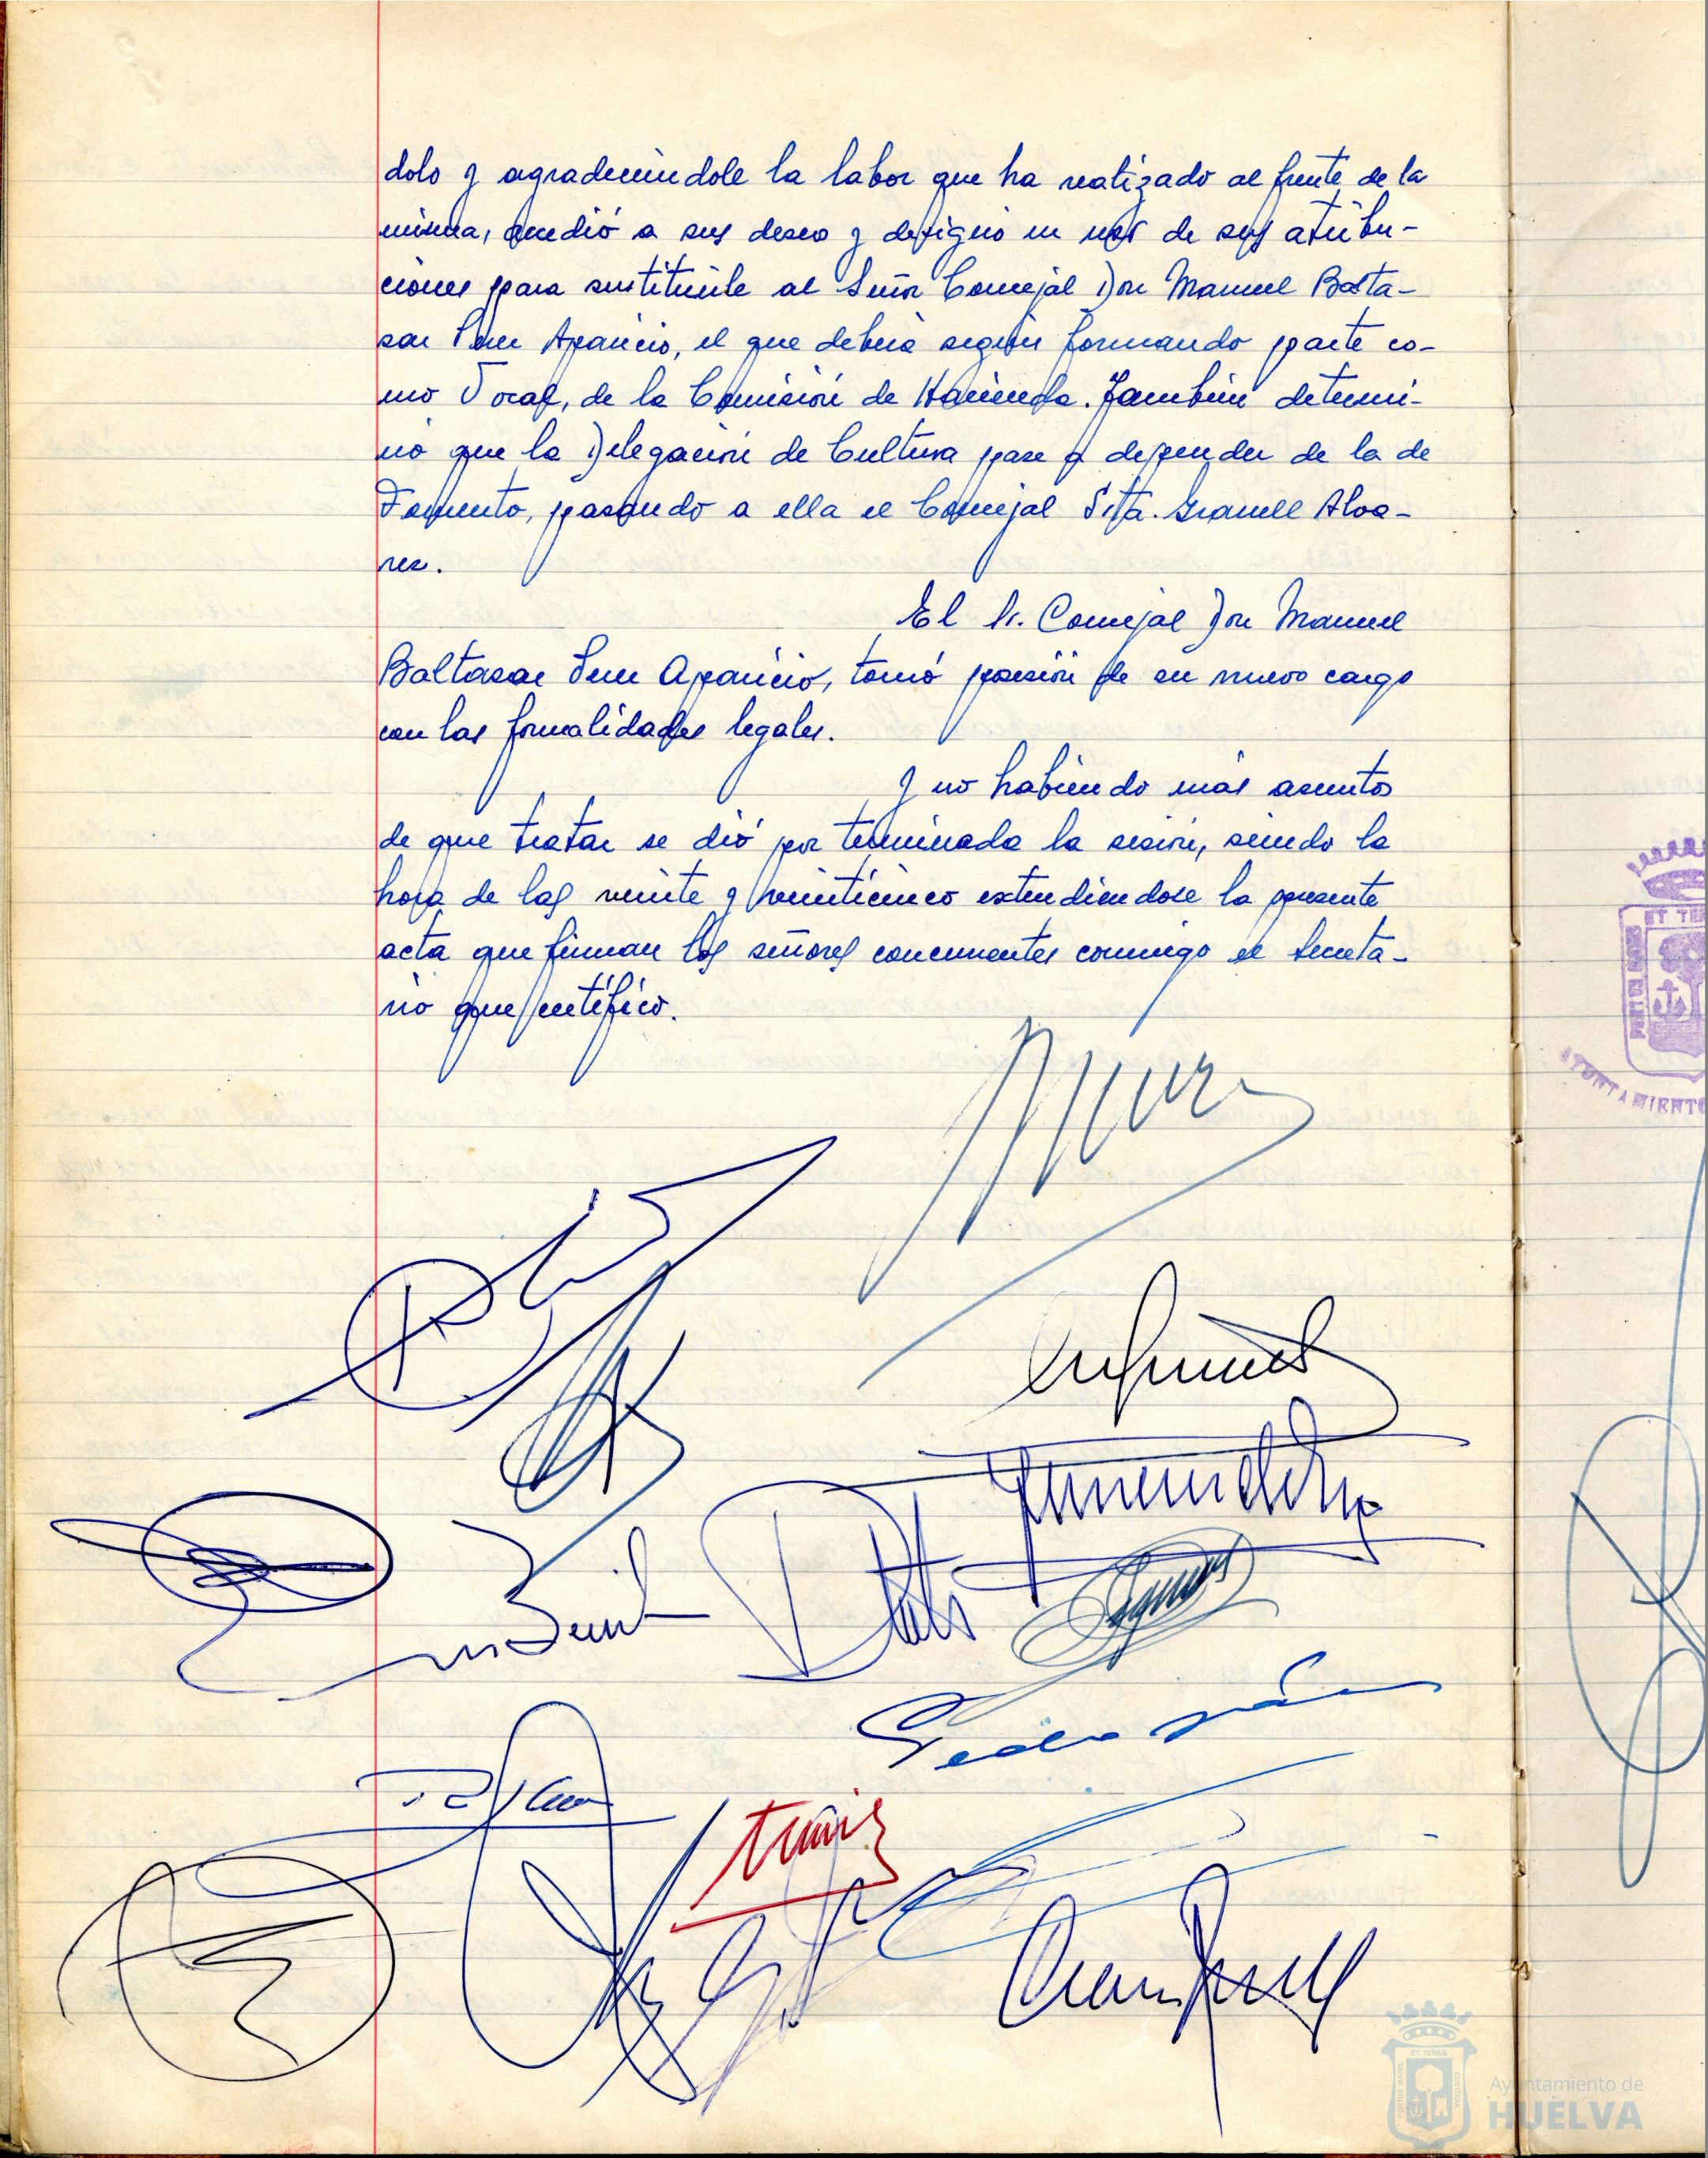 dolo y agradeciendole la labor que ha realizado al frente de la
misma, accedió a sus deseo y designó en uso de sus atribu-
ciones para sustituirle al Señor Concejal Don Manuel Balta-
sar Aparicio, el que deberá seguir formando parte co-
mo Vocal, de la Comisión de Hacienda. También determi-
nó que la Delegación de Cultura pase a depender de la de
Fomento, pasando a ella el Concejal Srta. Granell Alva-
rez.
El Sr. Concejal Don Manuel
Baltasar Aparicio, tomó posesión de su nuevo cargo
con las formalidades legales.
Y no habiendo más asuntos
de que tratar se dió por terminada la sesión, siendo la
hora de las veinte y veinticinco extendiendose la presente
acta que firman los señores concurrentes conmigo el Secreta-
rio que certifico.
ET TE
AYUNTAMIENTO
Ayuntamiento de
HUELVA